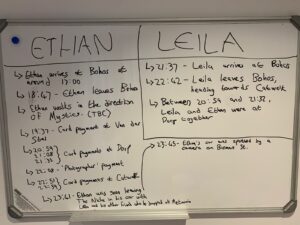 ETHAN
↳ Ethan arrives at Bohos at
around 17:00
↳ 18:47 - Ethan leaves Bohos
↳ Ethan walks in the direction
of Mystics. (TBC)
↳ 19:37 - Card payment at Van der
↳ 20:59
↳ 21:08
Card payments at Dorp
'Photographer' payment
Card payments at Catwalk
Ethan was seen leaving
The Niche in his car with
LEILA
↳ 21:37 - Leila arrives at Bohos
↳ 22:42 - Leila leaves Bohos,
heading towards Catwalk
↳ Between 20:59 and 21:32,
Leila and Ethan were at
Dorp together
↳ 23:45 - Ethan's car was spotted by a
camera on